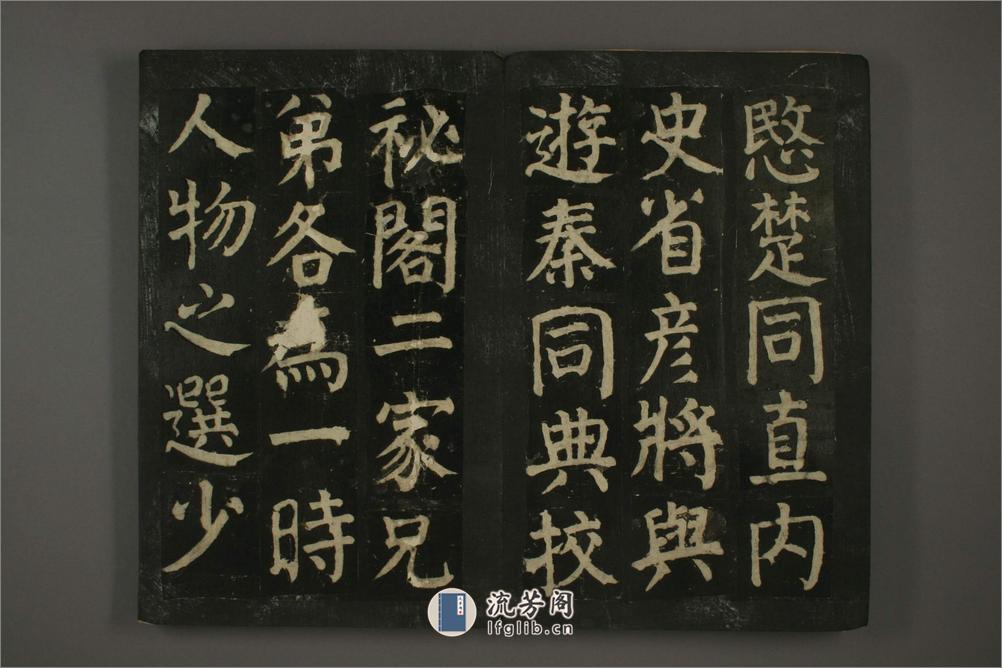 愍楚同直内
史省彦將與
遊秦同典校
祕閣二家兄
弟各為一時
人物之選少
流芳阁
lfglib.cn